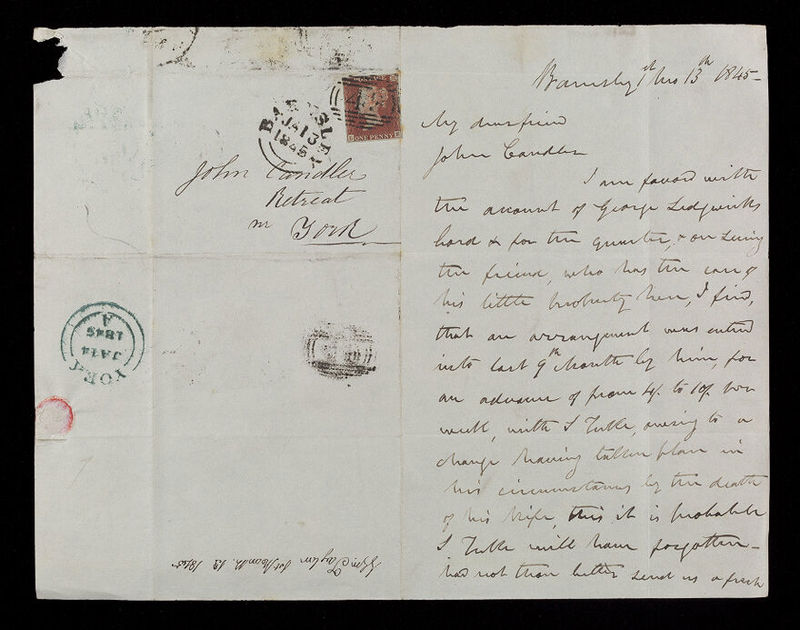 BARNSLEY
JA 13
1845
ONE PENNY
John Candler
Retreat
nr York
YORK
JA 14
1845
A
Wm Taylor 1st Month 13 1845
Barnsley 1st mo 13th 1845-
My dear friend
John Candler
I am favord with
the account of George Sedgwicks
bord &c for the quarter, & on seeing
the friend, who has the care of
his little property here, I find,
that an arrangement was entred
into last 9th Month by him, for
an advance of from 4/- to 10/- per
week, with S Tuke, owing to a
change having taken place in
his circumstances by the death
of his Wife, this it is probable
S Tuke will have forgotten-
had not thou better send us a fresh